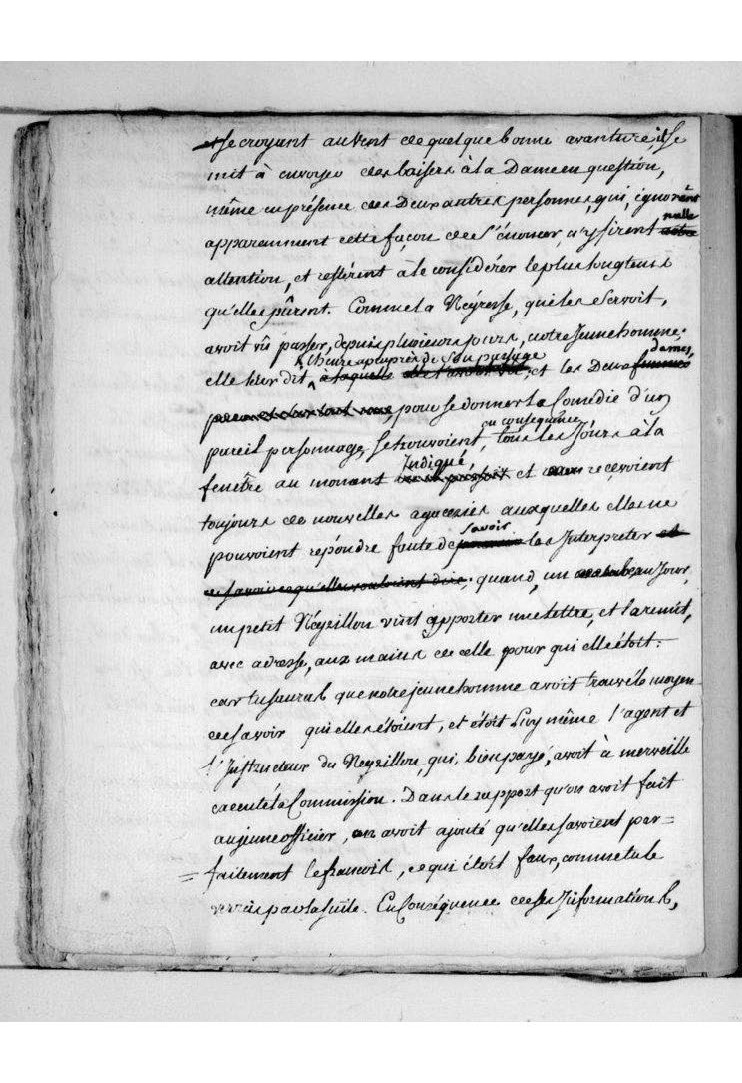 se croyant au vent de quelque bonne avanture, il se
mit à envoyer des baisers à la Dame en question,
même en présence des Deux autres personnes, qui, ignorént
nulle
apparemment cette façon de s'énoncer, n'y firent
attention, et restèrent à le considérer le plus longtems
qu'elles pûrent. Comme la Négresse, qui les servoit,
avoit vû passer, depuis plusieurs jours, notre Jeune homme;
l'heure apeuprès de son passage
dames,
elle leur dit à laquelle et les Deux femmes
pour se donner la Comédie d'un
en conséquence,
pareil personnage, se trouvoient, tous les Jours à la
Indiqué,
fenêtre au moment et recevoient
toujours de nouvelles agaceries auxquelles elles ne
savoir
pouvoient répondre faute de les Interpréter et
de savoir ce qu'elles vouloient dire; quand, un beau Jour,
un petit Négrillon vint apporter une lettre, et la remit,
avec adresse, aux mains de celle pour qui elle étoit:
car tu sauras que notre jeune homme avoit trouvé le moyen
de savoir qui elles étoient, et étoit Luy même l'agent et
l'Instructeur du Négrillon, qui, bien payé, avoit à merveille
exécuté la Commission. Dans le rapport qu'on avoit fait
au jeune officier, on avoit ajouté qu'elles savoient par=
=faitement le francois, ce qui étoit faux, comme tu le
verras par la suite. En Conséquence de ses Informations,